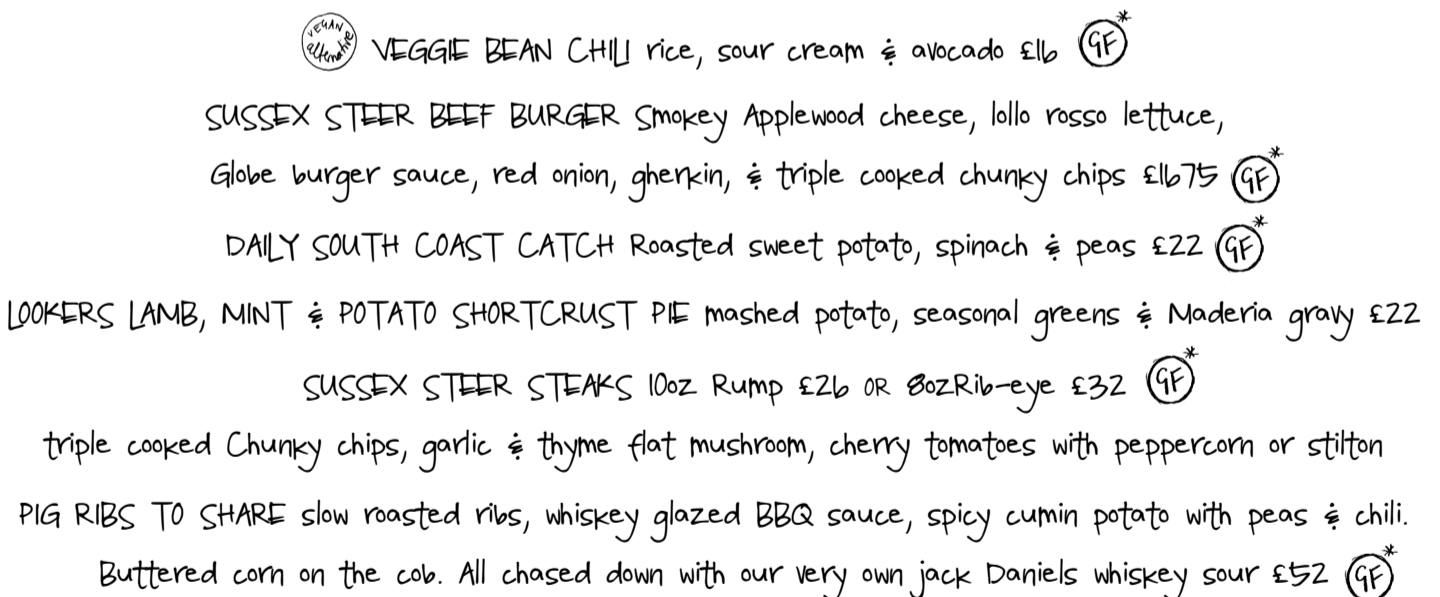 VEGAN alternative VEGGIE BEAN CHILI rice, sour cream & avocado £16 GF*
SUSSEX STEER BEEF BURGER Smokey Applewood cheese, lollo rosso lettuce,
Globe burger sauce, red onion, gherkin, & triple cooked chunky chips £1675 GF*
DAILY SOUTH COAST CATCH Roasted sweet potato, spinach & peas £22 GF*
LOOKERS LAMB, MINT & POTATO SHORTCRUST PIE mashed potato, seasonal greens & Maderia gravy £22
SUSSEX STEER STEAKS 10oz Rump £26 OR 8ozRib-eye £32 GF*
triple cooked Chunky chips, garlic & thyme flat mushroom, cherry tomatoes with peppercorn or stilton
PIG RIBS TO SHARE slow roasted ribs, whiskey glazed BBQ sauce, spicy cumin potato with peas & chili.
Buttered corn on the cob. All chased down with our very own jack Daniels whiskey sour £52 GF*